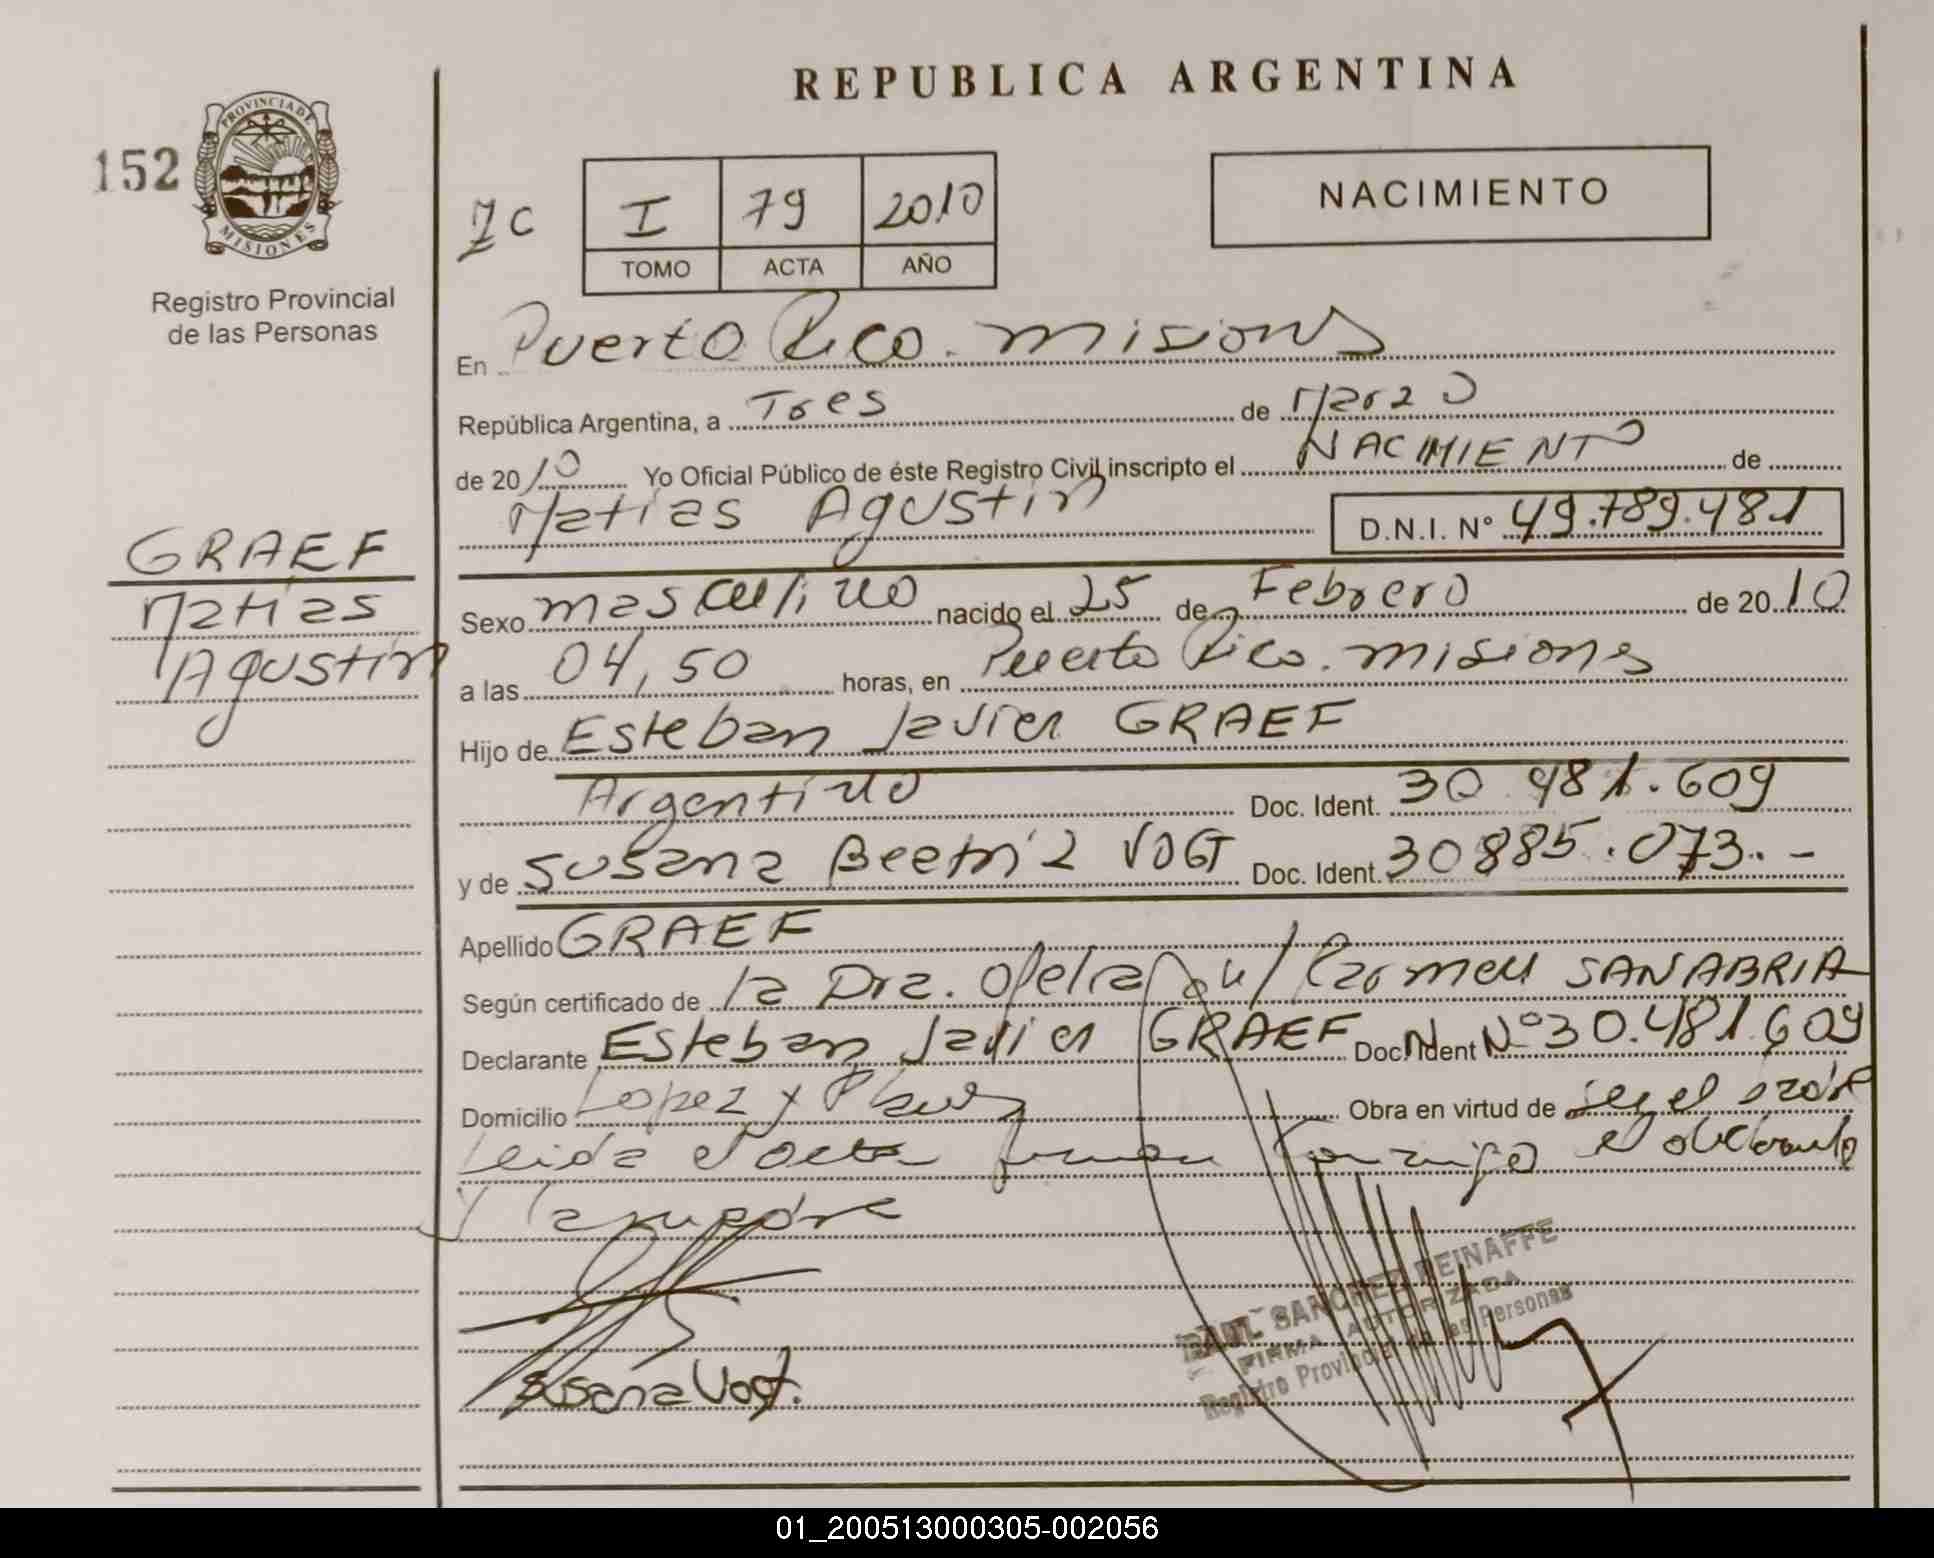 REPUBLICA ARGENTINA
152
PROVINCIA DE
MISIONES
Registro Provincial
de las Personas
I 79 2010
TOMO ACTA AÑO
NACIMIENTO
En Puerto Rico. misiones
República Argentina, a Tres de Marzo
de 2010 Yo Oficial Público de éste Registro Civil inscripto el NACIMIENTO de
Matias Agustin D.N.I. N° 49.789.481
GRAEF
Matias
Agustin
Sexo masculino nacido el 25 de Febrero de 2010
a las 04,50 horas, en Puerto Rico. misiones
Hijo de Esteban Javier GRAEF
Argentino Doc. Ident. 30.481.609
y de Susana Beatriz VOGT Doc. Ident. 30885.073.-
Apellido GRAEF
Según certificado de la Dra. Ofelia del Carmen SANABRIA
Declarante Esteban Javier GRAEF Doc. Ident N° 30.481.609
Domicilio Lopez y Obra en virtud de ser el padre
Leida el acta firman conmigo el declarante
y la madre
Susana Vogt.
SANCHEZ REINAFFE
FIRMA AUTORIZADA
Registro Provincial de las Personas
01_200513000305-002056